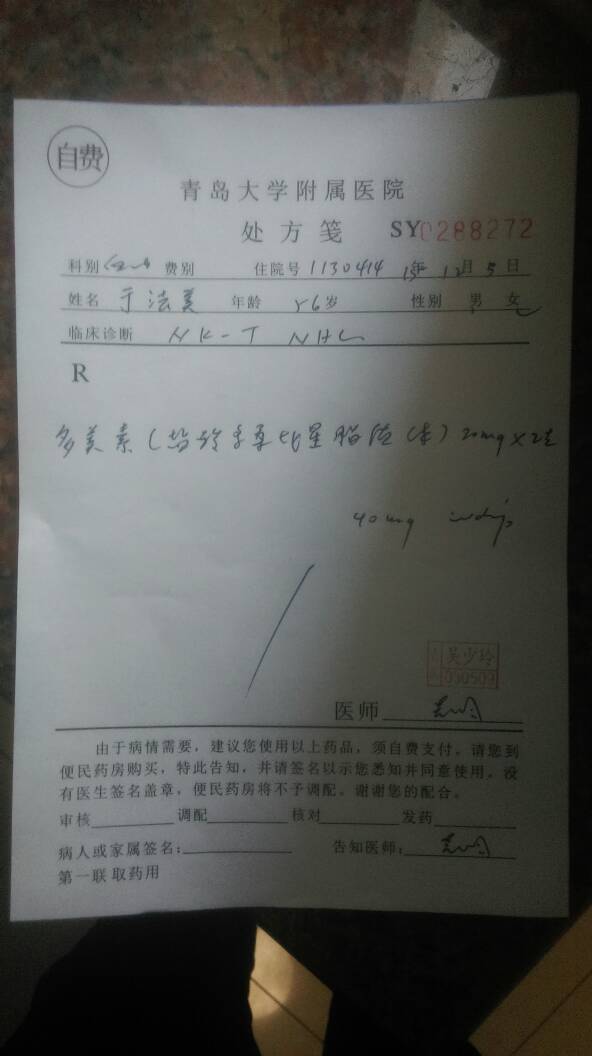 自费
青岛大学附属医院
处方笺 SY0288272
科别 费别 住院号 1130414 15年 12月 5日
姓名 于法美 年龄 56岁 性别 男 女
临床诊断 NK-T NHL
R
多美素(盐酸多柔比星脂质体)20mg×2支
40mg ivdrip
吴少玲
050509
医师
由于病情需要,建议您使用以上药品,须自费支付。请您到
便民药房购买,特此告知,并请签名以示您悉知并同意使用。没
有医生签名盖章,便民药房将不予调配。谢谢您的配合。
审核 调配 核对 发药
病人或家属签名: 告知医师:
第一联 取药用